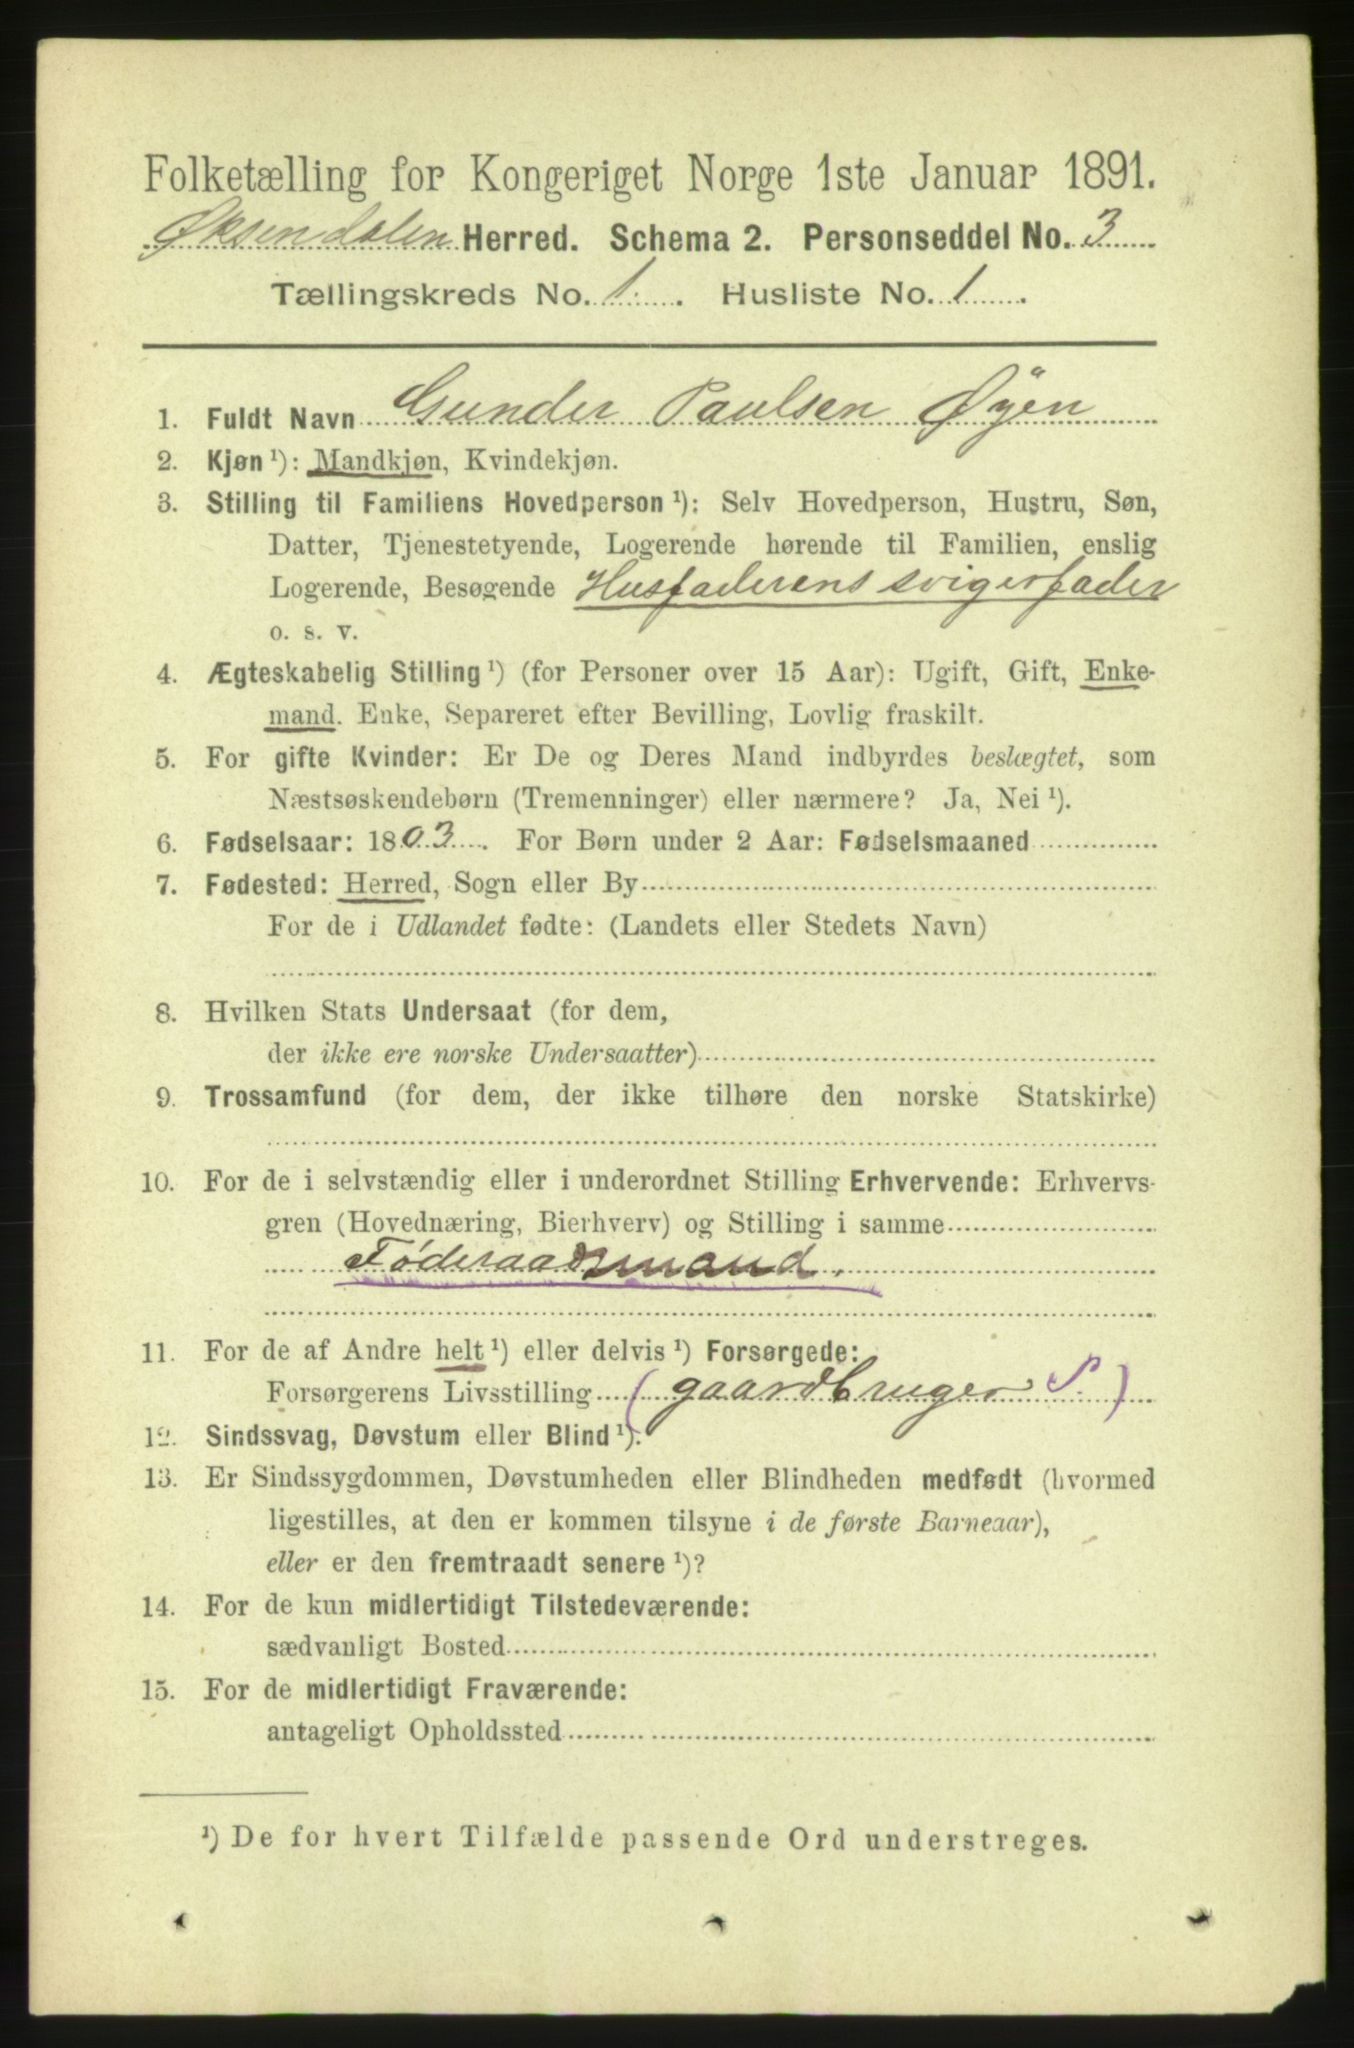 Folketælling for Kongeriget Norge 1ste Januar 1891.
Øksendalen Herred. Schema 2. Personseddel No. 3
Tællingskreds No. 1. Husliste No. 1
1. Fuldt Navn Gunder Paulsen Øyen
2. Kjøn ¹): Mandkjøn, Kvindekjøn.
3. Stilling til Familiens Hovedperson ¹): Selv Hovedperson, Hustru, Søn,
Datter, Tjenestetyende, Logerende hørende til Familien, enslig
Logerende, Besøgende Husfaderens svigerfader
o. s. v.
4. Ægteskabelig Stilling ¹) (for Personer over 15 Aar): Ugift, Gift, Enke-
mand. Enke, Separeret efter Bevilling, Lovlig fraskilt.
5. For gifte Kvinder: Er De og Deres Mand indbyrdes beslægtet, som
Næstsøskendebørn (Tremenninger) eller nærmere? Ja, Nei ¹).
6. Fødselsaar: 1803. For Børn under 2 Aar: Fødselsmaaned
7. Fødested: Herred, Sogn eller By
For de i Udlandet fødte: (Landets eller Stedets Navn)
8. Hvilken Stats Undersaat (for dem,
der ikke ere norske Undersaatter)
9. Trossamfund (for dem, der ikke tilhøre den norske Statskirke)
10. For de i selvstændig eller i underordnet Stilling Erhvervende: Erhvervs-
gren (Hovednæring, Bierhverv) og Stilling i samme
Føderaadsmand.
11. For de af Andre helt ¹) eller delvis ¹) Forsørgede:
Forsørgerens Livsstilling (gaardbruger S.)
12. Sindssvag, Døvstum eller Blind ¹).
13. Er Sindssygdommen, Døvstumheden eller Blindheden medfødt (hvormed
ligestilles, at den er kommen tilsyne i de første Barneaar),
eller er den fremtraadt senere ¹)?
14. For de kun midlertidigt Tilstedeværende:
sædvanligt Bosted
15. For de midlertidigt Fraværende:
antageligt Opholdssted
¹) De for hvert Tilfælde passende Ord understreges.